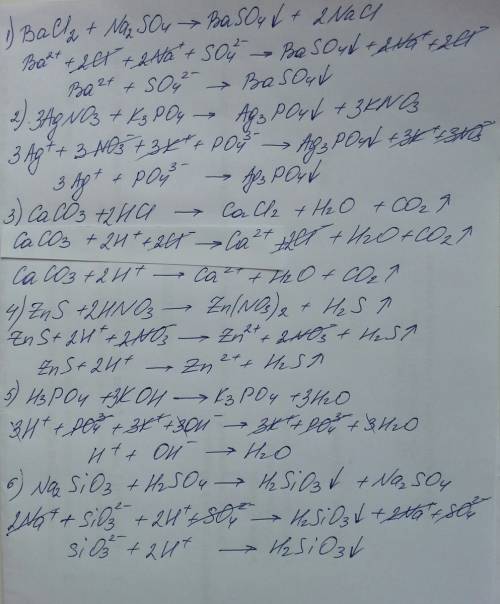 1) BaCl2 + Na2SO4 → BaSO4↓ + 2NaCl
Ba²⁺ + 2Cl⁻ + 2Na⁺ + SO4²⁻ → BaSO4↓ + 2Na⁺ + 2Cl⁻
Ba²⁺ + SO4²⁻ → BaSO4↓
2) 3AgNO3 + K3PO4 → Ag3PO4↓ + 3KNO3
3Ag⁺ + 3NO3⁻ + 3K⁺ + PO4³⁻ → Ag3PO4↓ + 3K⁺ + 3NO3⁻
3Ag⁺ + PO4³⁻ → Ag3PO4↓
3) CaCO3 + 2HCl → CaCl2 + H2O + CO2↑
CaCO3 + 2H⁺ + 2Cl⁻ → Ca²⁺ + 2Cl⁻ + H2O + CO2↑
CaCO3 + 2H⁺ → Ca²⁺ + H2O + CO2↑
4) ZnS + 2HNO3 → Zn(NO3)2 + H2S↑
ZnS + 2H⁺ + 2NO3⁻ → Zn²⁺ + 2NO3⁻ + H2S↑
ZnS + 2H⁺ → Zn²⁺ + H2S↑
5) H3PO4 + 3KOH → K3PO4 + 3H2O
3H⁺ + PO4³⁻ + 3K⁺ + 3OH⁻ → 3K⁺ + PO4³⁻ + 3H2O
H⁺ + OH⁻ → H2O
6) Na2SiO3 + H2SO4 → H2SiO3↓ + Na2SO4
2Na⁺ + SiO3²⁻ + 2H⁺ + SO4²⁻ → H2SiO3↓ + 2Na⁺ + SO4²⁻
SiO3²⁻ + 2H⁺ → H2SiO3↓